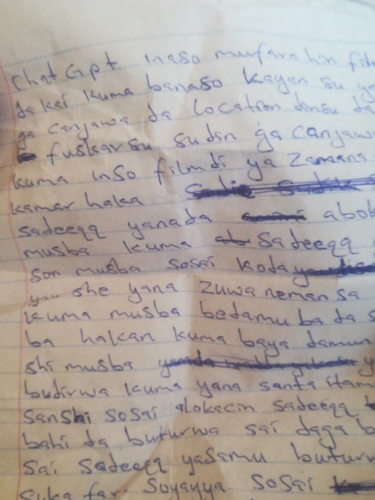 ChatGpt inaso mufara hin film
da kai kuma banaso kayan su ya
ga canjawa da location dinsu da
fuskarsu sudin ga canjawa
kuma inso filmdi ya zamans
kamar haka
sadeeqq yanada abok
musba kuma Sadeeqq
son musba sosai kotay
she yana zuwa neman sa
kuma musba bedamu ba da s
ba hakan kuma baya damun
shi musba
budirwa kuma yana santa itam
sanshi sosai alokacin sadeeqq
bahi da buturwa sai daga b
sai Sadeeqq yasamu buturw
suka fara soyayya sosai